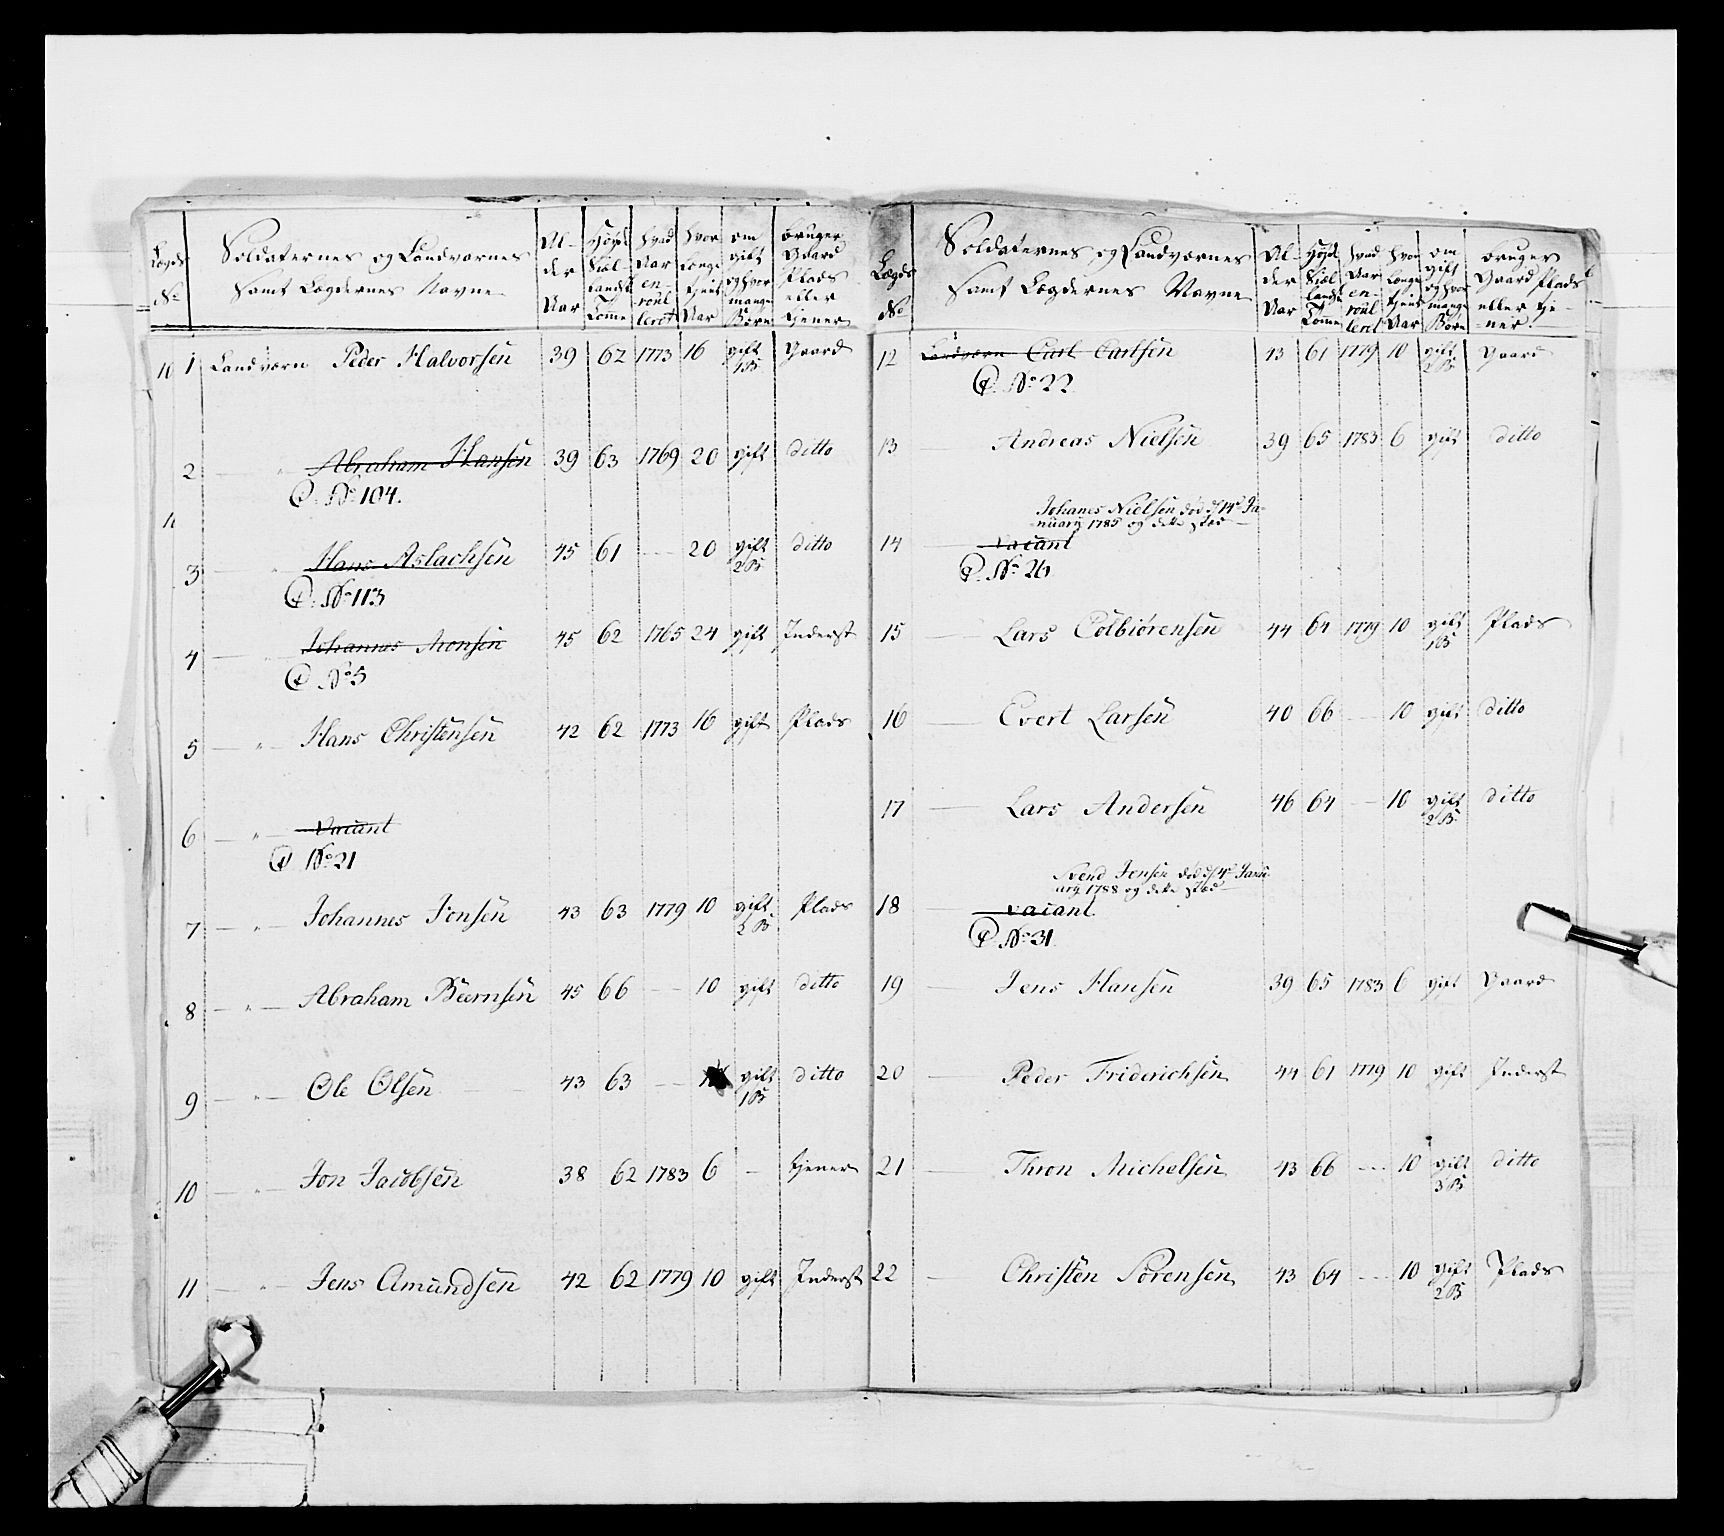 Lægds No
Soldaternes og Landværnes
Samt Lægdernes Navne
Al-
der
Aar
Høyde
Siel-
lands
Tomme
hvad
Aar
en-
roul
leret
hvor
Længe
tient
Aar
om
gift
og hvor
mange
Børn
bruger
Gaard
Plads
eller
tjener
10 1 Landværn Peder Halvorsen 39 62 1773 16 gift Gaard
1 B
2 " Abraham Hansen 39 63 1769 20 gift ditto
P. No 104.
3 " Hans Aslachsen 45 61 — 20 gift ditto
2 B
P. No 113
4 " Johannes Monsen 45 62 1765 24 gift Inderst
P No 5
5 " Hans Christensen 42 62 1773 16 gift Plads
6 " vacant
P No 21
7 " Johannes Jonsen 43 63 1779 10 gift Plads
2 B
8 " Abraham Beernsen 45 66 — 10 gift ditto
9 " Ole Olsen 43 63 — gift ditto
1 B
10 " Jon Jacobsen 38 62 1783 6 — tjener
11 " Jens Amundsen 42 62 1779 10 gift Inderst
Lægds
No
Soldaternes og Landværnes
Samt Lægdernes Navne
Al-
der
Aar
Høyde
Siel-
lands
Tomme
hvad
Aar
en-
roul
leret
hvor
Længe
tient
Aar
om
gift
og hvor
mange
Børn
bruger
Gaard Plads
eller tje-
ner
12 Landværn Carl Carlsen 43 61 1779 10 gift Gaard
2 B
P. No 22
13 Andreas Nielsen 39 65 1783 6 gift ditto
Johanes Nielsen død d 14de Ja-
nuary 1785 og dette stæd
14 vacant
P. No 26
15 Lars Colbiørensen 44 64 1779 10 gift Plads
1 B
16 Evert Larsen 40 66 — 10 gift ditto
17 Lars Andersen 46 64 — 10 gift ditto
2 B
Svend Jensen død d 4de Janu
ary 1788 og dette stæd
18 vacant
P No 31
19 Jens Hansen 39 65 1783 6 gift Gaard
20 Peder Friderichsen 44 61 1779 10 gift Inderst
21 Thron Michelsen 43 66 — 10 gift ditto
3 B
22 Christen Sørensen 43 64 — 10 gift Plads
2 B